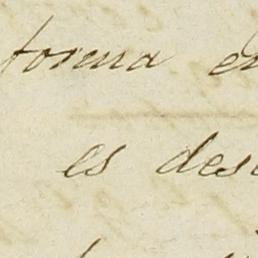 forma en
es des